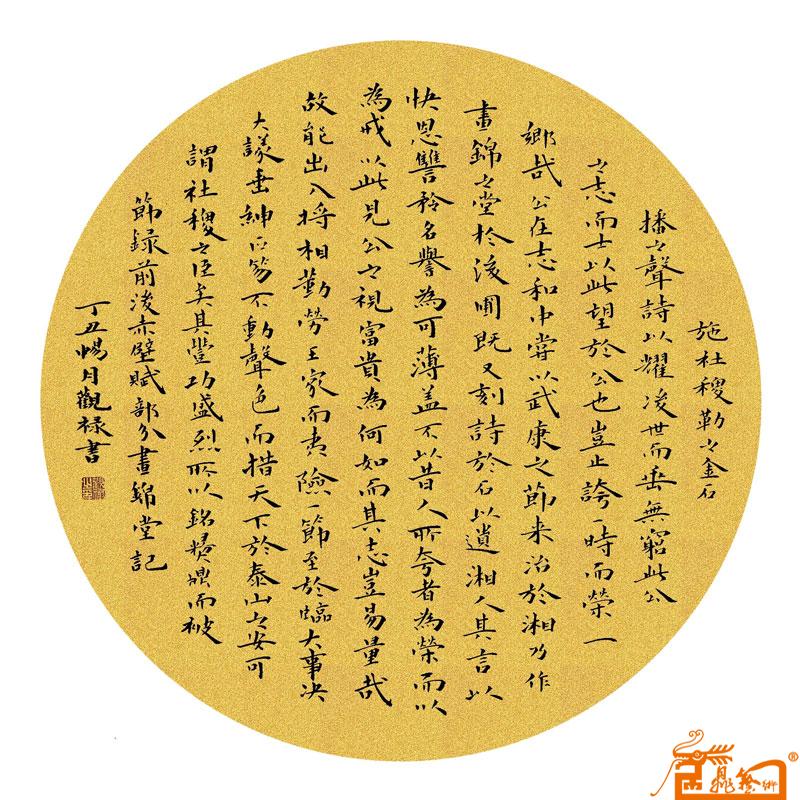 施社稷勒之金石
播之聲詩以耀後世而垂無窮此公
之志而士以此望於公也豈止誇一時而榮一
鄉哉公在志和中嘗以武康之節来治於湘乃作
畫錦之堂於後圃既又刻詩於石以遺湘人其言以
快恩讐矜名譽為可薄盖不以昔人所夸者為榮而以
為戒以此見公之視富貴為何如而其志豈易量哉
故能出入將相勤勞王家而夷險一節至於臨大事决
大議垂紳正笏不動聲色而措天下於泰山之安可
謂社稷之臣矣其豐功盛烈所以銘彝鼎而被
節録前後赤壁賦部分畫錦堂記
丁丑暢月觀禄書